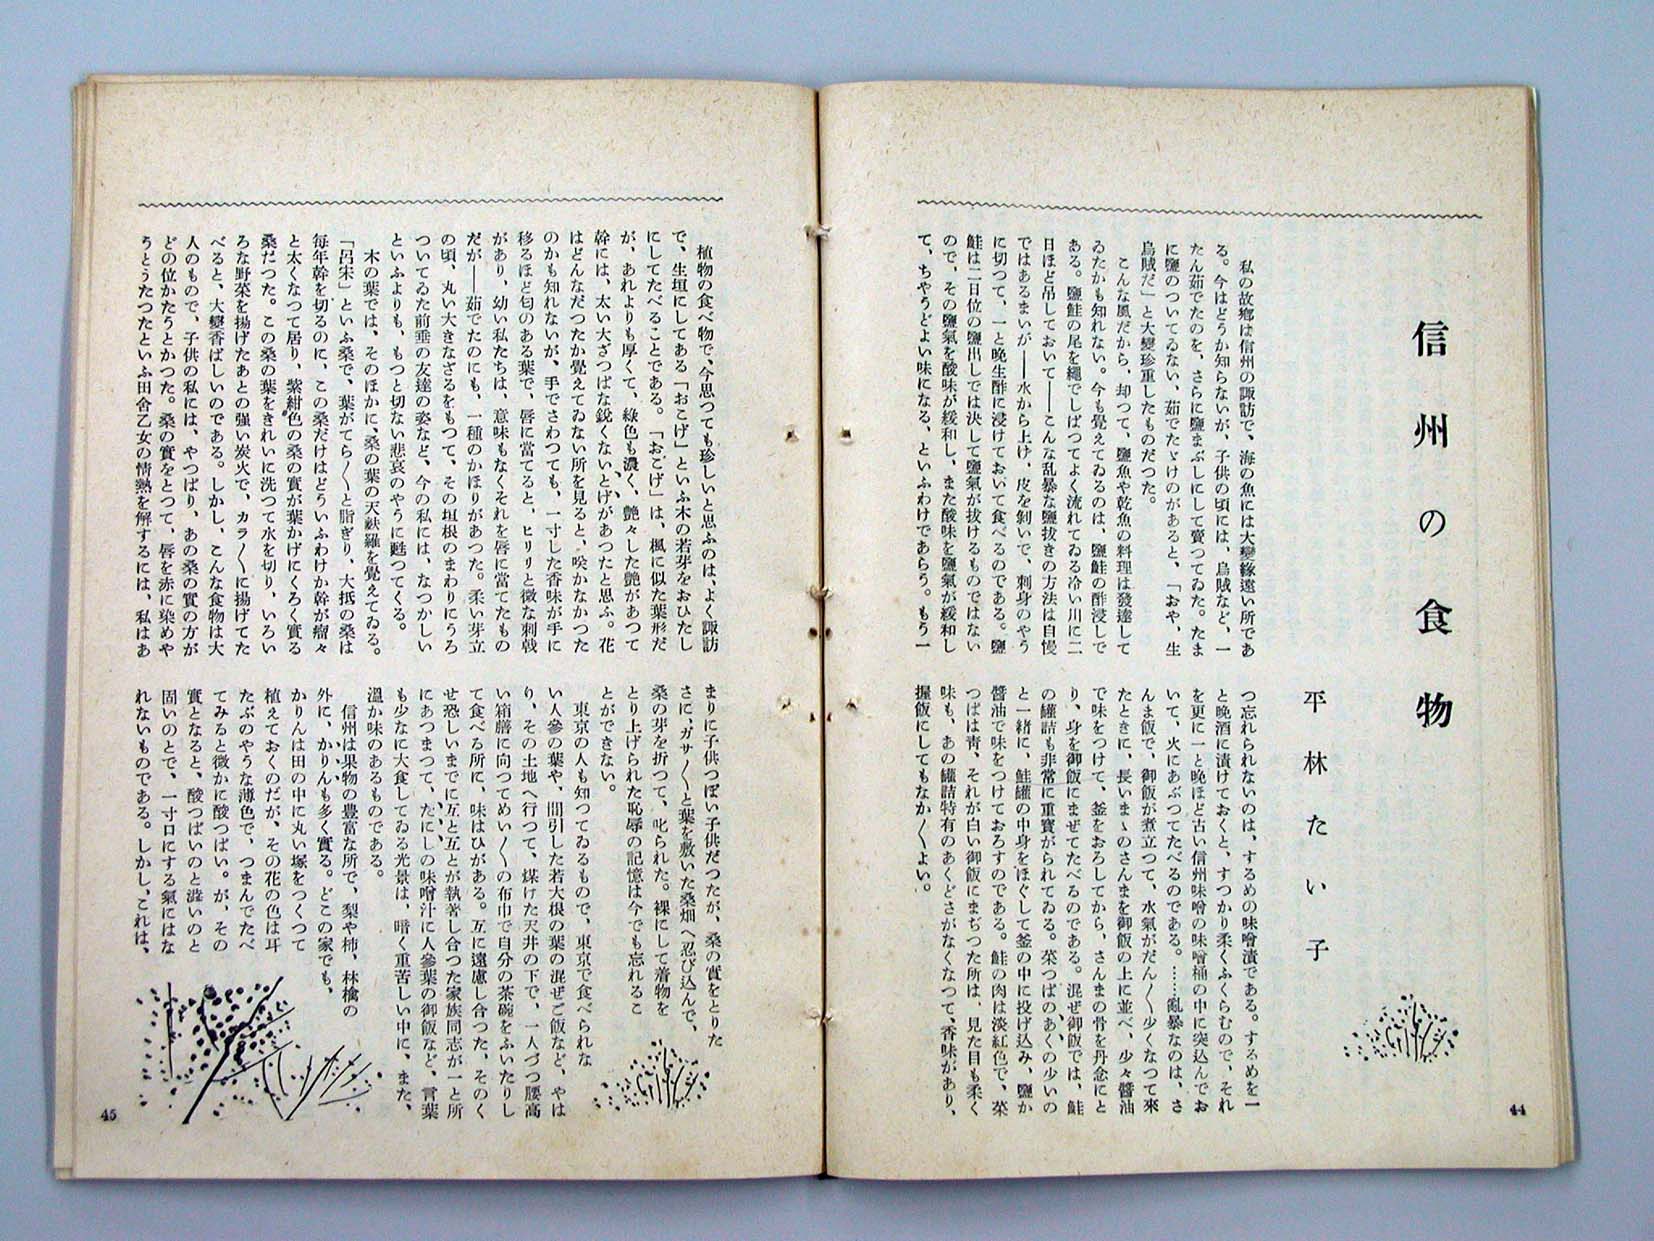 信州の食物
平林たい子
私の故郷は信州の諏訪で、海の魚には大變緣遠い所であ
る。今はどうか知らないが、子供の頃には、烏賊など、一
たん茹でたのを、さらに鹽まぶしにして賣つてゐた。たま
に鹽のついてゐない、茹でたゞけのがあると、「おや、生
烏賊だ」と大變珍重したものだつた。
こんな風だから、却つて、鹽魚や乾魚の料理は發達して
ゐたかも知れない。今も覺えてゐるのは、鹽鮭の酢浸しで
ある。鹽鮭の尾を繩でしばつてよく流れてゐる冷い川に二
日ほど吊しておいて――こんな乱暴な鹽拔きの方法は自慢
ではあるまいが――水から上げ、皮を剝いで、刺身のやう
に切つて、一と晩生酢に浸けておいて食べるのである。鹽
鮭は二日位の鹽出しでは決して鹽氣が拔けるものではない
ので、その鹽氣を酸味が緩和し、また酸味を鹽氣が緩和し
て、ちやうどよい味になる、といふわけであらう。もう一
つ忘れられないのは、するめの味噌漬である。するめを一
と晩酒に漬けておくと、すつかり柔くふくらむので、それ
を更に一と晩ほど古い信州味噌の味噌桶の中に突込んでお
いて、火にあぶつてたべるのである。……亂暴なのは、さ
んま飯で、御飯が煮立つて、水氣がだん〳〵少くなつて來
たときに、長いまゝのさんまを御飯の上に並べ、少々醬油
で味をつけて、釜をおろしてから、さんまの骨を丹念にと
り、身を御飯にまぜてたべるのである。混ぜ御飯では、鮭
の罐詰も非常に重寶がられてゐる。菜つぱのあくの少いの
と一緒に、鮭罐の中身をほぐして釜の中に投げ込み、鹽か
醬油で味をつけておろすのである。鮭の肉は淡紅色で、菜
つぱは靑、それが白い御飯にまぢつた所は、見た目も柔く
味も、あの罐詰特有のあくどさがなくなつて、香味があり、
握飯にしてもなか〳〵よい。
44
植物の食べ物で、今思つても珍しいと思ふのは、よく諏訪
で、生垣にしてある「おこげ」といふ木の若芽をおひたし
にしてたべることである。「おこげ」は、楓に似た葉形だ
が、あれよりも厚くて、綠色も濃く、艶々した艶があつて
幹には、太い大ざつぱな銳くない、とげがあつたと思ふ。花
はどんなだつたか覺えてゐない所を見ると、咲かなかつた
のかも知れないが、手でさわつても、一寸した香味が手に
移るほど匂のある葉で、唇に當てると、ヒリリと微な刺戟
があり、幼い私たちは、意味もなくそれを唇に當てたもの
だが――茹でたのにも、一種のかほりがあつた。柔い芽立
の頃、丸い大きなざるをもつて、その垣根のまわりにうろ
ついてゐた前垂の友達の姿など、今の私には、なつかしい
といふよりも、もつと切ない悲哀のやうに甦つてくる。
木の葉では、そのほかに、桑の葉の天麩羅を覺えてゐる。
「呂宋」といふ桑で、葉がてら〳〵と脂ぎり、大抵の桑は
毎年幹を切るのに、この桑だけはどういふわけか幹が瘤々
と太くなつて居り、紫紺色の桑の實が葉かげにくろく實る
桑だつた。この桑の葉をきれいに洗つて水を切り、いろい
ろな野菜を揚げたあとの强い炭火で、カラ〳〵に揚げてた
べると、大變香ばしいのである。しかし、こんな食物は大
人のもので、子供の私には、やつぱり、あの桑の實の方が
どの位かたうとかつた。桑の實をとつて、唇を赤に染めや
うとうたつたといふ田舍乙女の情熱を解するには、私はあ
まりに子供つぽい子供だつたが、桑の實をとりた
さに、ガサ〳〵と葉を敷いた桑畑へ忍び込んで、
桑の芽を折つて、叱られた。裸にして着物を
とり上げられた恥辱の記憶は今でも忘れるこ
とができない。
東京の人も知つてゐるもので、東京で食べられな
い人參の葉や、間引した若大根の葉の混ぜご飯など、やは
り、その土地へ行つて、煤けた天井の下で、一人づつ腰高
い箱膳に向つてめい〳〵の布巾で自分の茶碗をふいたりし
て食べる所に、味はひがある。互に遠慮し合つた、そのく
せ恐しいまでに互と互とが執著し合つた家族同志が一と所
にあつまつて、たにしの味噌汁に人參葉の御飯など、言葉
も少なに大食してゐる光景は、暗く重苦しい中に、また、
溫か味のあるものである。
信州は果物の豊富な所で、梨や柿、林檎の
外に、かりんも多く實る。どこの家でも、
かりんは田の中に丸い塚をつくつて
植えておくのだが、その花の色は耳
たぶのやうな薄色で、つまんでたべ
てみると微かに酸つぱい。が、その
實となると、酸つぱいのと澁いのと
固いのとで、一寸口にする氣にはな
れないものである。しかし、これは、
45